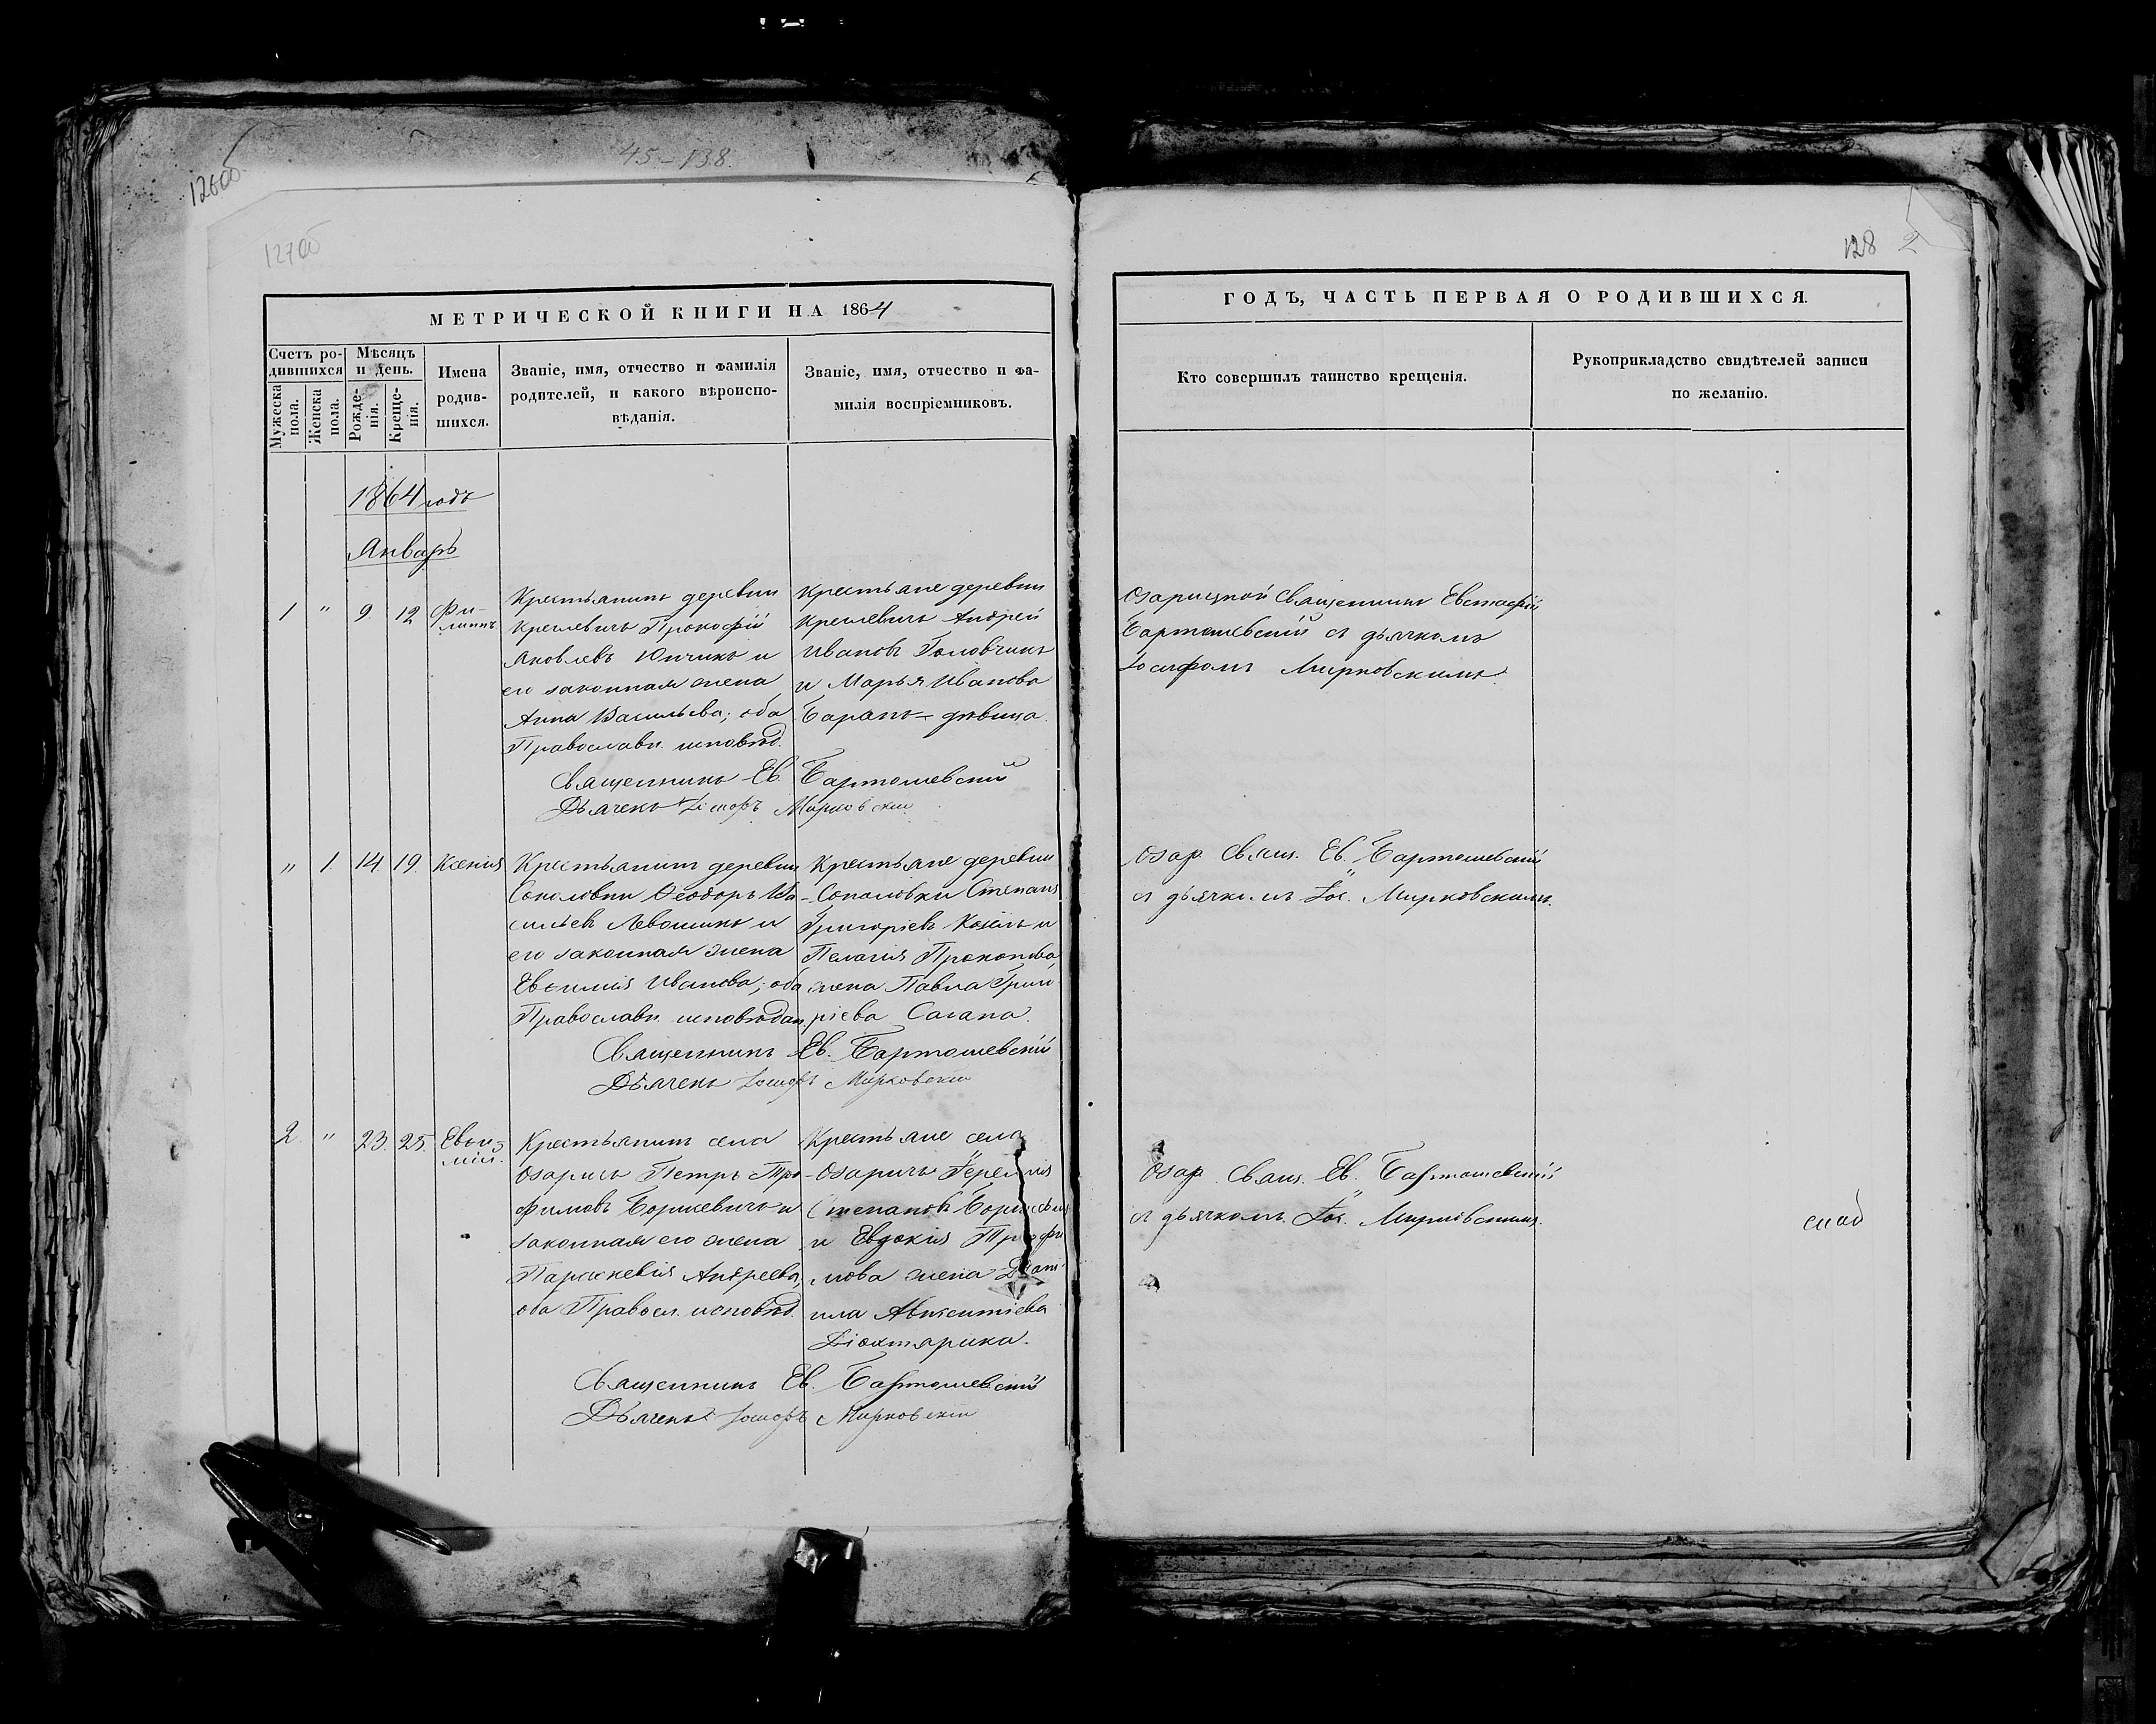 45-138.
126об
127об
МЕТРИЧЕСКОЙ КНИГИ НА 1864
Счетъ родившихся
Мужеска пола.
Женска пола.
Мѣсяцъ и день.
Рожденія.
Крещенія.
Имена родившихся.
Званіе, имя, отчество и фамилія
родителей, и какого вѣроиспо-
вѣданія.
Званіе, имя, отчество и фа-
милія воспріемниковъ.
1864 годъ
Январь
1 " 9. 12 Фи-
липпъ
Крестьянинъ деревни
Крулевичъ Прокофій
Яковлевъ Юнчикъ и
его законная жена
Анна Васильева; оба
Православн. исповѣд.
Крестьяне деревни
Андрей
Ивановъ Головчикъ
и Марья Иванова
Баранъ - дѣвица.
Священникъ Ев. Бартошевскій
Дьячекъ Іосифъ Мирковскій
" 1. 14. 19. Ксенія
Крестьянинъ деревни
Соколовки Ѳеодоръ Ва-
сильев Левошикъ и
его законная жена
Евѳимія Иванова; оба
Православн. исповѣдан.
Крестьяне деревни
Соколовки Степанъ
Григоріевъ Козелъ и
Пелагія Прокопова
жена Павла Григо
ріева Сагана.
Священникъ Ев. Бартошевскій
Дьячекъ Іосифъ Мирковскій
2 " 23. 25. Евѳи-
мій.
Крестьянинъ села
Озаричъ Петръ Тро-
фимовъ Боришевичъ и
законная его жена
Параскевія Андреева,
оба Правосл. исповѣд.
Крестьяне села
Озаричъ Іеремія
Степановъ
и Евдокія Трофи
мова жена Дани
ила Авксентіева
Діохтярика.
Священникъ Ев. Бартошевскій
Дьячекъ Іосифъ Мирковскій
128 2
ГОДЪ, ЧАСТЬ ПЕРВАЯ О РОДИВШИХСЯ.
Кто совершилъ таинство крещенія.
Рукоприкладство свидѣтелей записи
по желанію.
Озарицкой Священникъ Евстафій
Бартошевскій съ дьячкомъ
Іосифомъ Мирковскимъ.
Озар. Свящ. Ев. Бартошевскій
съ дьячкомъ Іос. Мирковскимъ.
Озар. Свящ. Ев. Бартошевскій
съ дьячкомъ Іос. Мирковскимъ.